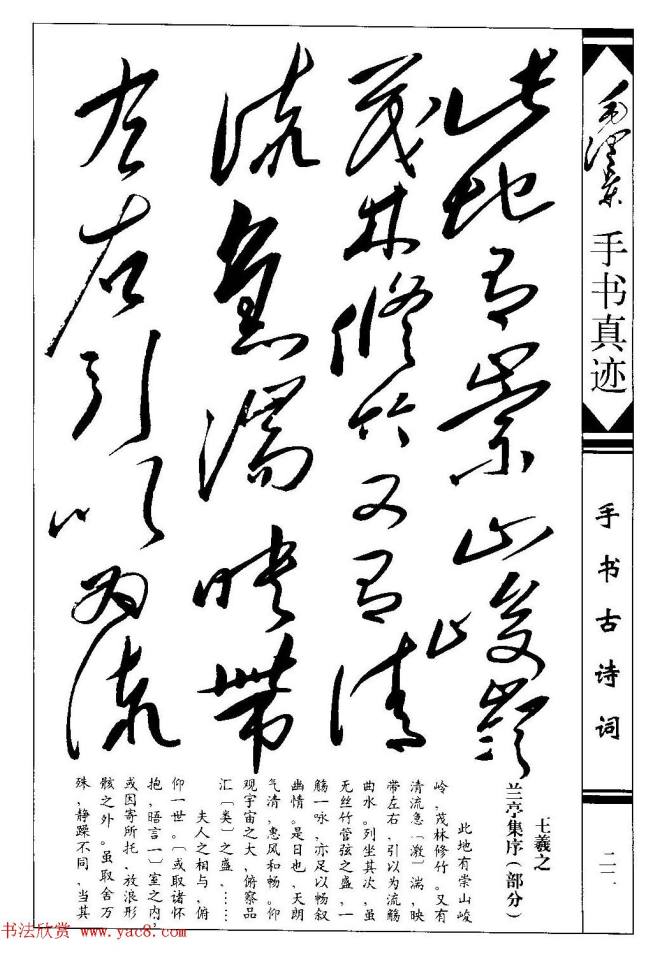 毛泽东 手书真迹
手书古诗词
此地有崇山峻嶺
茂林修竹又有清
流急湍映帶
左右引以为流
王羲之
兰亭集序(部分)
此地有崇山峻
岭,茂林修竹。又有
清流急〔激〕湍,映
带左右,引以为流觞
曲水。列坐其次,虽
无丝竹管弦之盛,一
觞一咏,亦足以畅叙
幽情。是日也,天朗
气清,惠风和畅。仰
观宇宙之大,俯察品
汇〔类〕之盛,……
夫人之相与,俯
仰一世。〔或取诸怀
抱,晤言一〕室之内,
或因寄所托,放浪形
骸之外。虽取舍万
殊,静躁不同,当其
书法欣赏 www.yac8.com